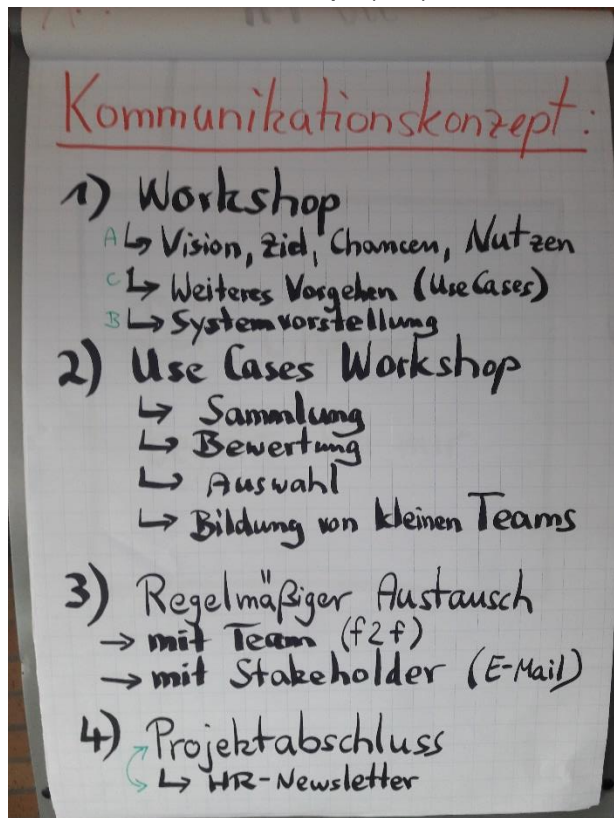 Kommunikationskonzept:
1) Workshop
A ↳ Vision, Ziel, Chancen, Nutzen
C ↳ Weiteres Vorgehen (Use Cases)
B ↳ Systemvorstellung
2) Use Cases Workshop
↳ Sammlung
↳ Bewertung
↳ Auswahl
↳ Bildung von kleinen Teams
3) Regelmäßiger Austausch
→ mit Team (f2f)
→ mit Stakeholder (E-Mail)
4) Projektabschluss
↳ HR-Newsletter